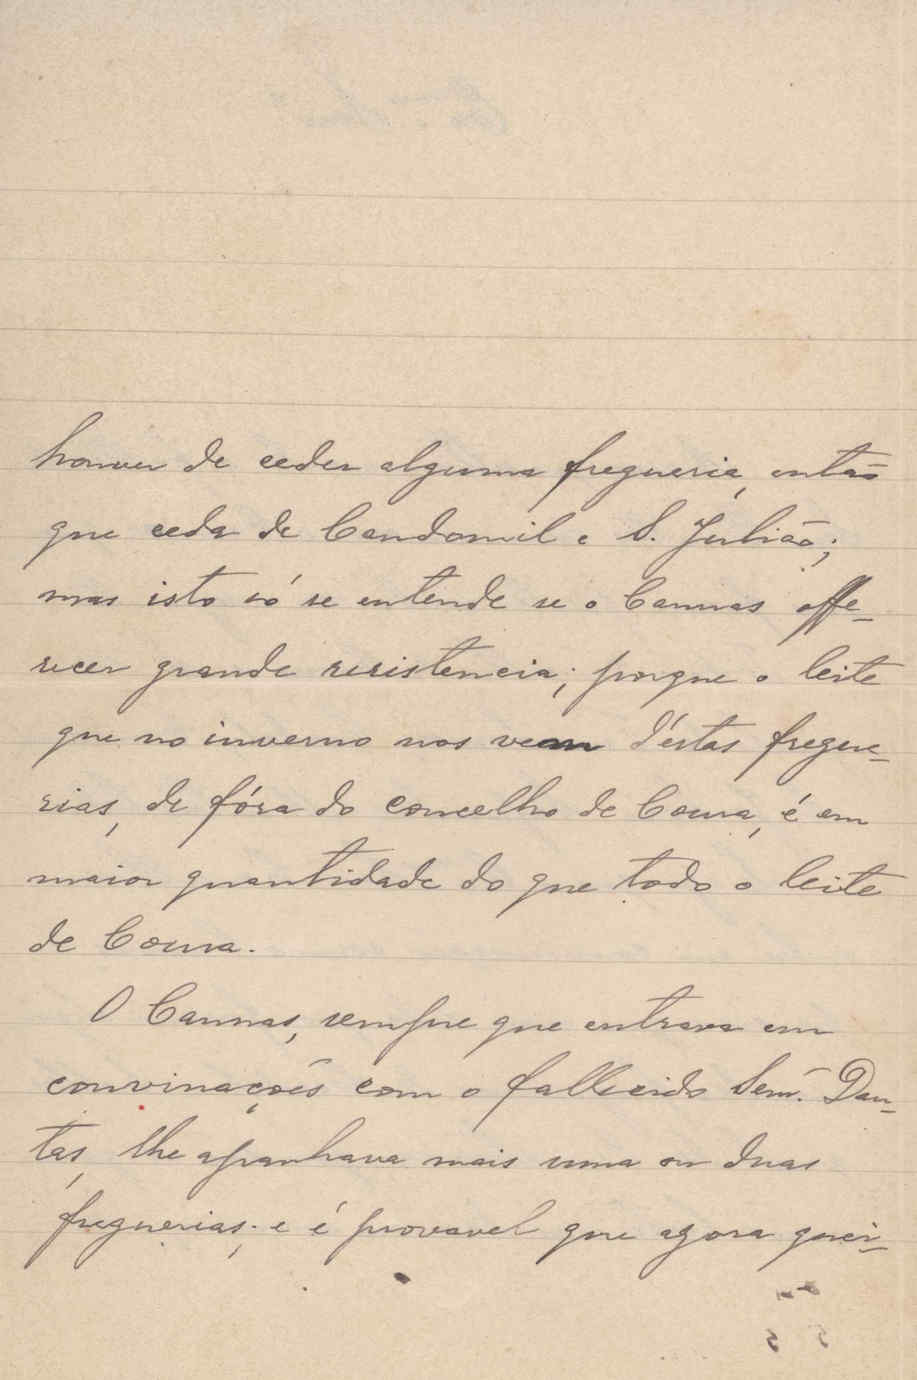 houver de ceder alguma fregueria, então
que ceda de Candomil e S. Julião;
mas isto só se entende se o Cannas offe-
recer grande resistencia; porque o leite
que no inverno nos vem d'éstas freguе-
rias, de fóra do concelho de Coura, é em
maior quantidade do que todo o leite
de Coura.
O Cannas, sempre que entrava em
convinações com o fallecido Senr. Dan-
tas, lhe apanhava mais uma ou duas
freguerias; e é provavel que agora quei-